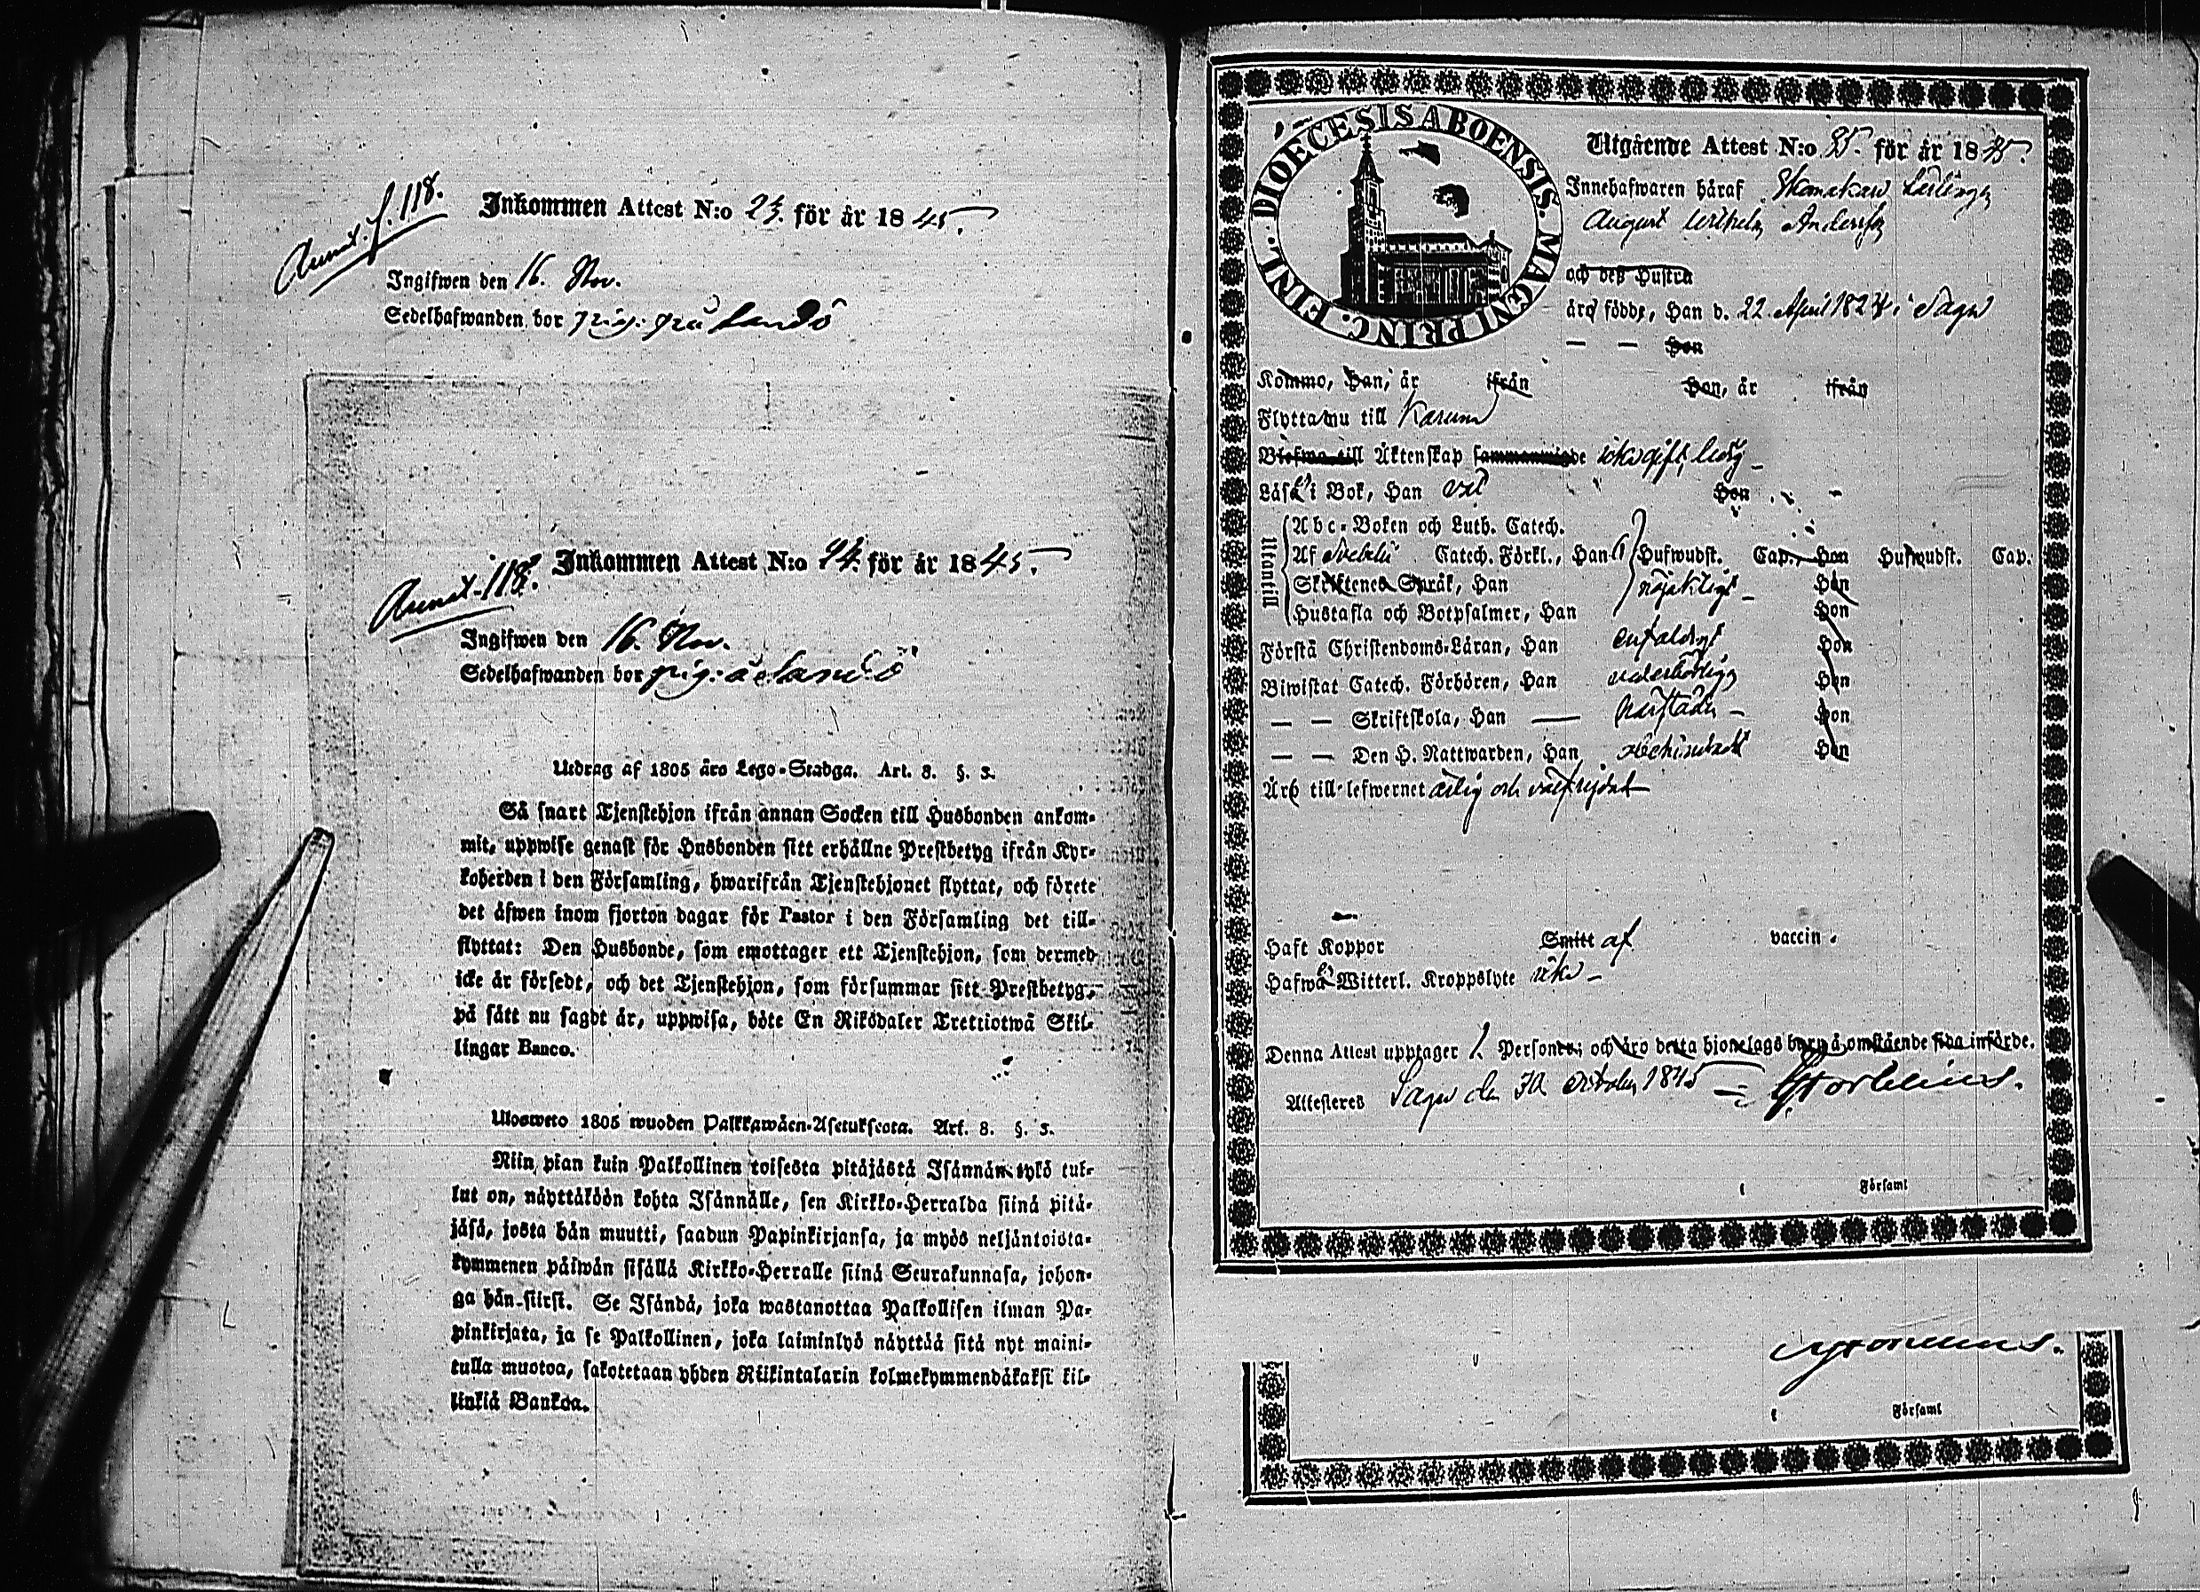 Annot. f. 118.
Inkommen Attest N:o 23. för år 1845.
Ingifwen den 16. Nov.
Sedelhafwanden bor
Annot. 118.
Inkommen Attest N:o 24. för år 1845.
Ingifwen den 16. Nov.
Sedelhafwanden bor
Utdrag af 1805 års Lego-Stadga. Art. 8. §. 3.
Så snart Tjenstehjon ifrån annan Socken till Husbonden ankom-
mit, uppwise genast för Husbonden sitt erhållne Prestbetyg ifrån Kyr-
koherden i den Församling, hwarifrån Tjenstehjonet flyttat, och förete
det äfwen inom fjorton dagar för Pastor i den Församling det till-
flyttat: Den Husbonde, som emottager ett Tjenstehjon, som dermed
icke är försedt, och det Tjenstehjon, som försummar sitt Prestbetyg,
på sätt nu sagdt är, uppwisa, böte En Riksdaler Trettiotwå Skil-
lingar Banco.
Ulosweto 1805 wuoden Palkkawäen-Asetuksesta. Art. 8. §. 3.
Niin pian kuin Palkollinen toisesta pitäjästä Isännän tykö tul-
lut on, näyttäköön kohta Isännälle, sen Kirkko-Herralda siinä pitä-
jäsä, josta hän muutti, saadun Papinkirjansa, ja myös neljäntoista-
kymmenen päiwän sisällä Kirkko-Herralle siinä Seurakunnasa, johon-
ga hän siirst. Se Isändä, joka wastanottaa Palkollisen ilman Pa-
pinkirjata, ja se Palkollinen, joka laiminlyö näyttää sitä nyt maini-
tulla muotoa, sakotetaan yhden Riikintalarin kolmekymmendäkaksi kil-
linkiä Bankoa.
DIOECESIS ABOENSIS. MAGNI PRINC. FINL.
Utgående Attest N:o 25. för år 1845.
Innehafwaren häraf Skomakare Lärlingen
August Wilhelm Andersson
och deß Hustru
äro födde, Han d. 22 April 1824 i Sagu
— — Hon
Kommo, Han, år ifrån Hon, år ifrån
Flytta nu till Karuna
Blefwo till Äktenskap sammanwigde icke gift, ledig
Läsa i Bok, Han väl Hon
Utantill
Abc-Boken och Luth. Catech.
Af Svebelii Catech. Förkl., Han Hufwudst. Cap., Hon Hufwudst. Cap.
Skriftenes Språk, Han nöjaktigt Hon
Hustafla och Botpsalmer, Han Hon
Förstå Christendoms-Läran, Han enfaldigt Hon
Biwistat Catech. Förhören, Han vederbörligen Hon
— — Skriftskola, Han — Hon
— — Den H. Nattwarden, Han Hon
Äro till lefwernet ärlig och välfrejdad
Haft Koppor Smitt af vaccin.
Hafwa Witterl. Kroppslyte icke
Denna Attest upptager 1 Personer; och äro detta hjonelags barn å omstående sida införde.
Attesteras Sagu den 30 October 1845
Församl
Församl